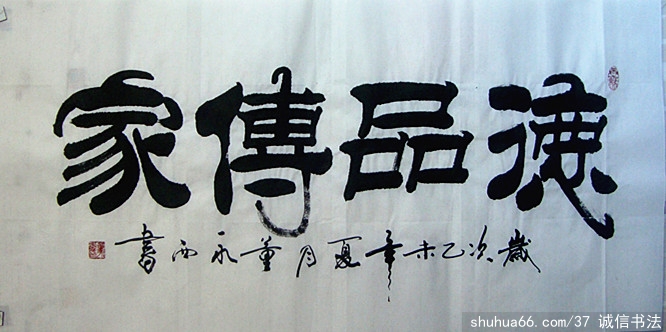 德品傳家
歲次乙未年夏月董永西書
shuhua66.com/37 诚信书法